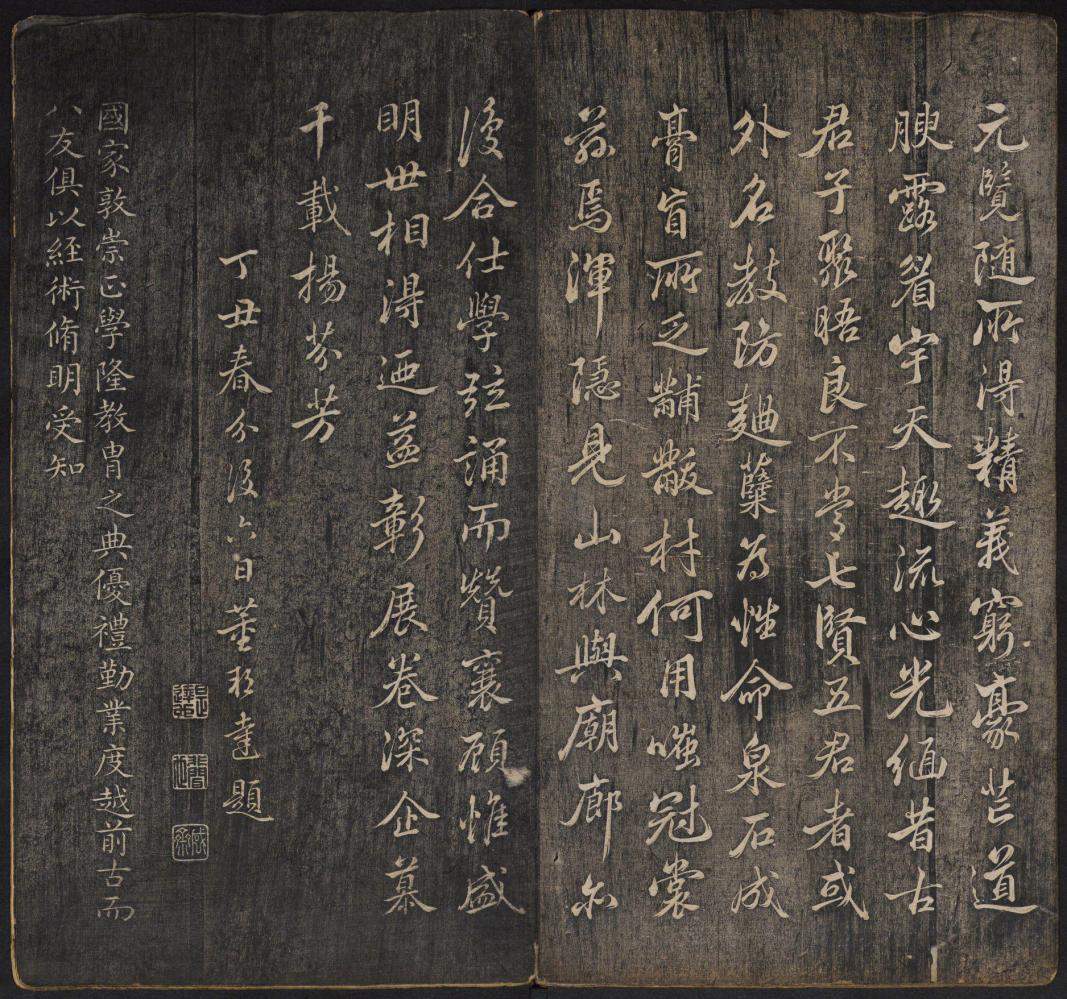 元覽随所得精義窮豪芒道
腴露眉宇天趣流心光緬昔古
君子聚晤良不常七賢五君者或
外名教防麹蘖為性命泉石成
膏肓所乏黼黻材何用嗤冠裳
茲焉渾隱見山林與廟廊尒
後合仕學弦誦而贊襄顧惟盛
明世相得迺益彰展卷深企慕
千載揚芬芳
丁丑春分後六日董邦達題
國家敦崇正學隆教胄之典優禮勤業度越前古而
八友俱以経術脩明受知